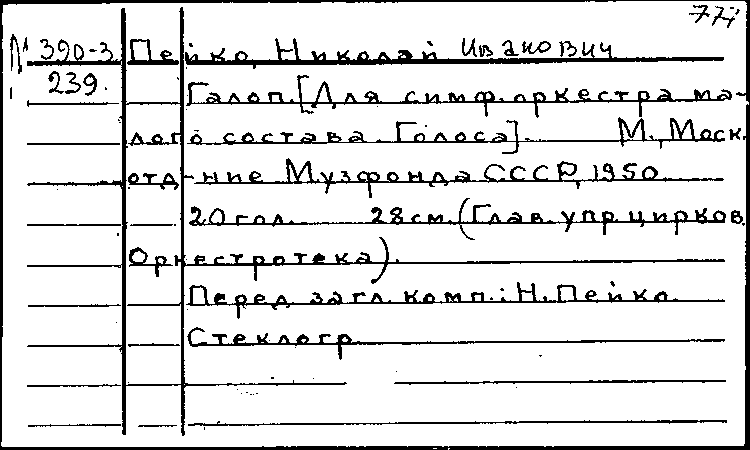 777
№ 390-3 Пейко, Николай Иванович
239.
Галоп. [Для симф. оркестра ма-
лого состава. Голоса]. М., Моск.
отд-ние Музфонда СССР, 1950
20 гол. 28 см. (Глав. упр. цирков.
Оркестротека).
Перед загл. комп.: Н. Пейко.
Стеклогр.